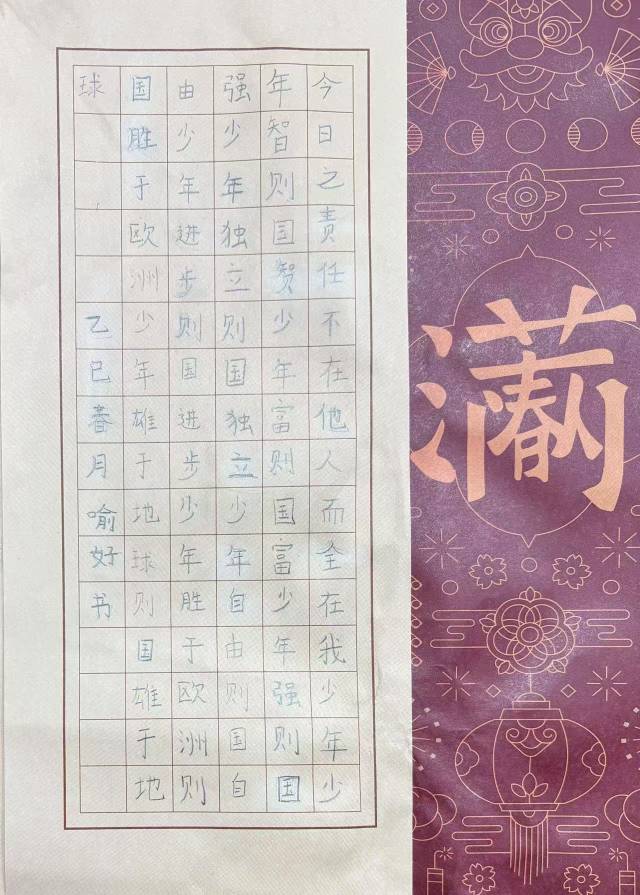 今日之责任不在他人而全在我少年少
年智则国智少年富则国富少年强则国
强少年独立则国独立少年自由则国自
由少年进步则国进步少年胜于欧洲则
国胜于欧洲少年雄于地球则国雄于地
球
乙巳春月喻好书